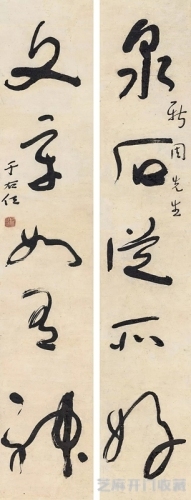 泉石從所好
周先生
文章如有神
于右任
芝麻开门收藏